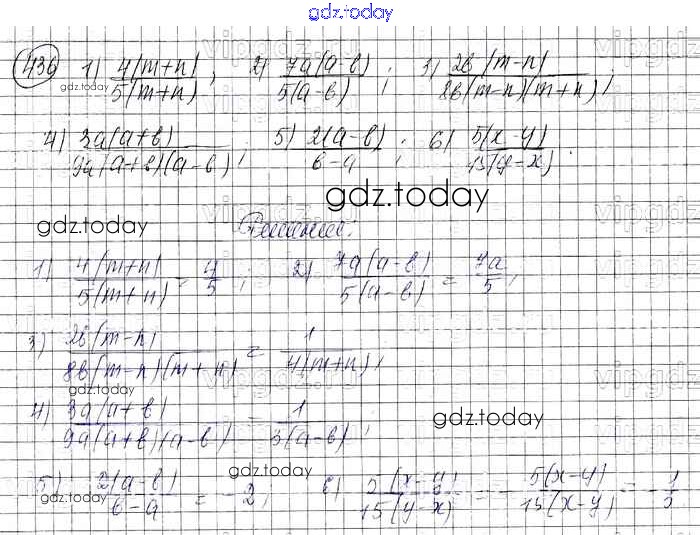 gdz.today
436 1) 4(m+n)/5(m+n); 2) 7a(a-b)/5(a-b); 3) 2b(m-n)/8b(m-n)(m+n);
gdz.today
4) 3a(a+b)/9a(a+b)(a-b); 5) 2(a-b)/b-a; 6) 5(x-y)/15(y-x).
gdz.today
gdz.today
Решение:
1) 4(m+n)/5(m+n) = 4/5; 2) 7a(a-b)/5(a-b) = 7a/5;
3) 2b(m-n)/8b(m-n)(m+n) = 1/4(m+n);
gdz.today
4) 3a(a+b)/9a(a+b)(a-b) = 1/3(a-b);
gdz.today
gdz.today
5) 2(a-b)/b-a = -2; 6) 5(x-y)/15(y-x) = -5(x-y)/15(x-y) = -1/3
gdz.today